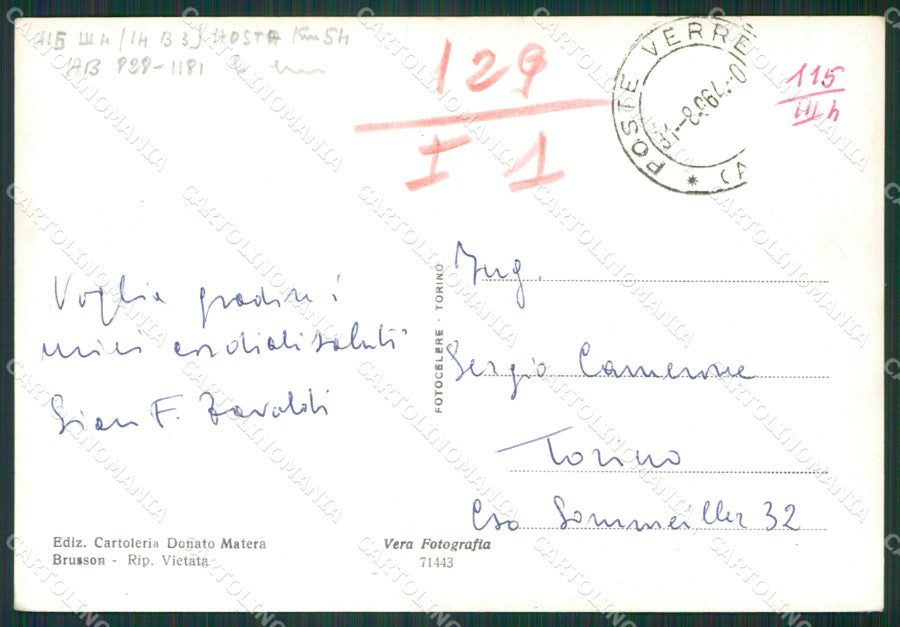 AOSTA Km 54
AB 929-1181
129
I 1
POSTE VERRE
* CA
115
III h
Voglia gradire i
miei cordiali saluti
Gian F.
FOTOCELERE - TORINO
Ing.
Sergio Camerone
Torino
Cso Sommeiller 32
Ediz. Cartoleria Donato Matera
Brusson - Rip. Vietata
Vera Fotografia
71443
CARTOLINOMANIA